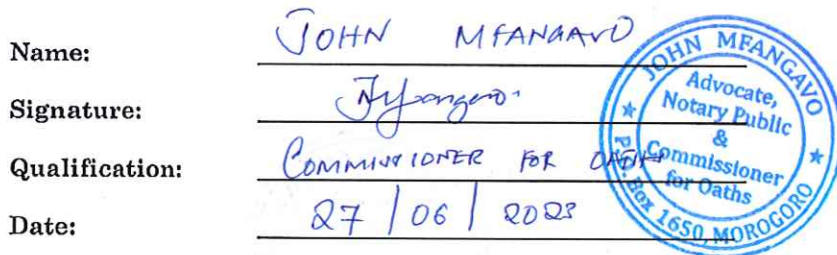 Name: JOHN MFANGAVO
Signature:
Qualification: COMMISSIONER FOR OATHS
Date: 27/06/2023
JOHN MFANGAVO
Advocate,
Notary Public
&
Commissioner
for Oaths
P.O. Box 1650, MOROGORO